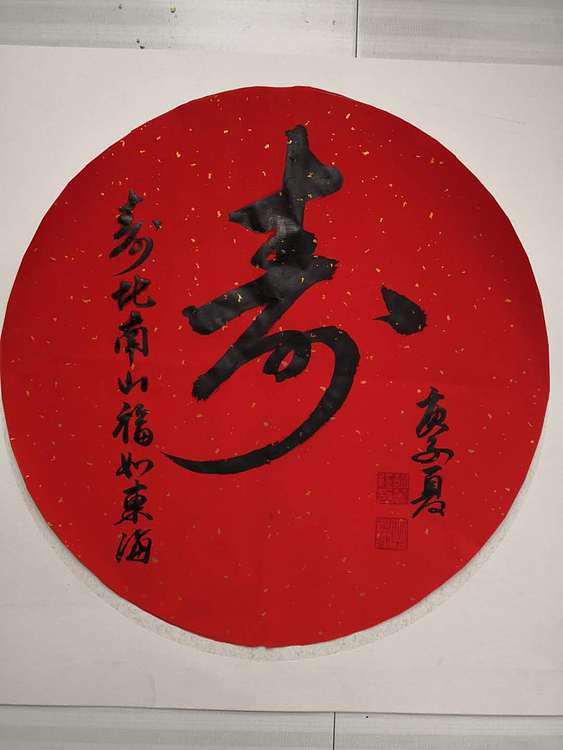 寿
寿比南山福如東海
庚子夏